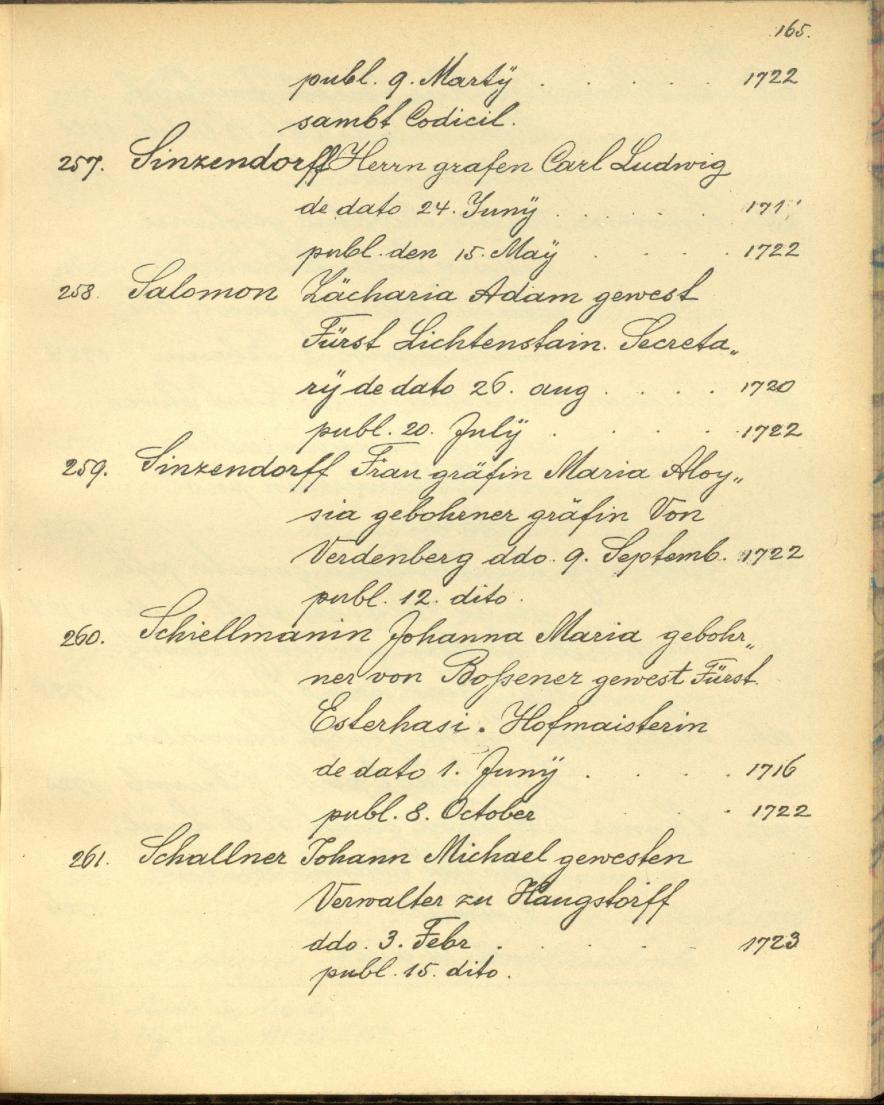 165.
publ. 9. Martÿ . . . . . 1722
sambt Codicil.
257. Sinzendorff Herrn grafen Carl Ludwig
de dato 24. Junÿ . . . . .
publ. den 15. Maÿ . . . . 1722
258. Salomon Zächaria Adam gewest
Fürst Lichtenstain. Secreta„
rÿ de dato 26. aug . . . . 1720
publ. 20. Julÿ . . . . . 1722
259. Sinzendorff Frau gräfin Maria Aloy„
sia gebohrner gräfin Von
Verdenberg ddo. 9. Septemb. 1722
publ. 12. dito.
260. Schiellmanin Johanna Maria gebohr„
ner von Boßener gewest Fürst
Esterhasi. Hofmaisterin
de dato 1. Junÿ . . . . 1716
publ. 8. October . . . 1722
261. Schallner Johann Michael gewesten
Verwalter zu Haugstorff
ddo. 3. Febr . . . . . 1723
publ. 15. dito.